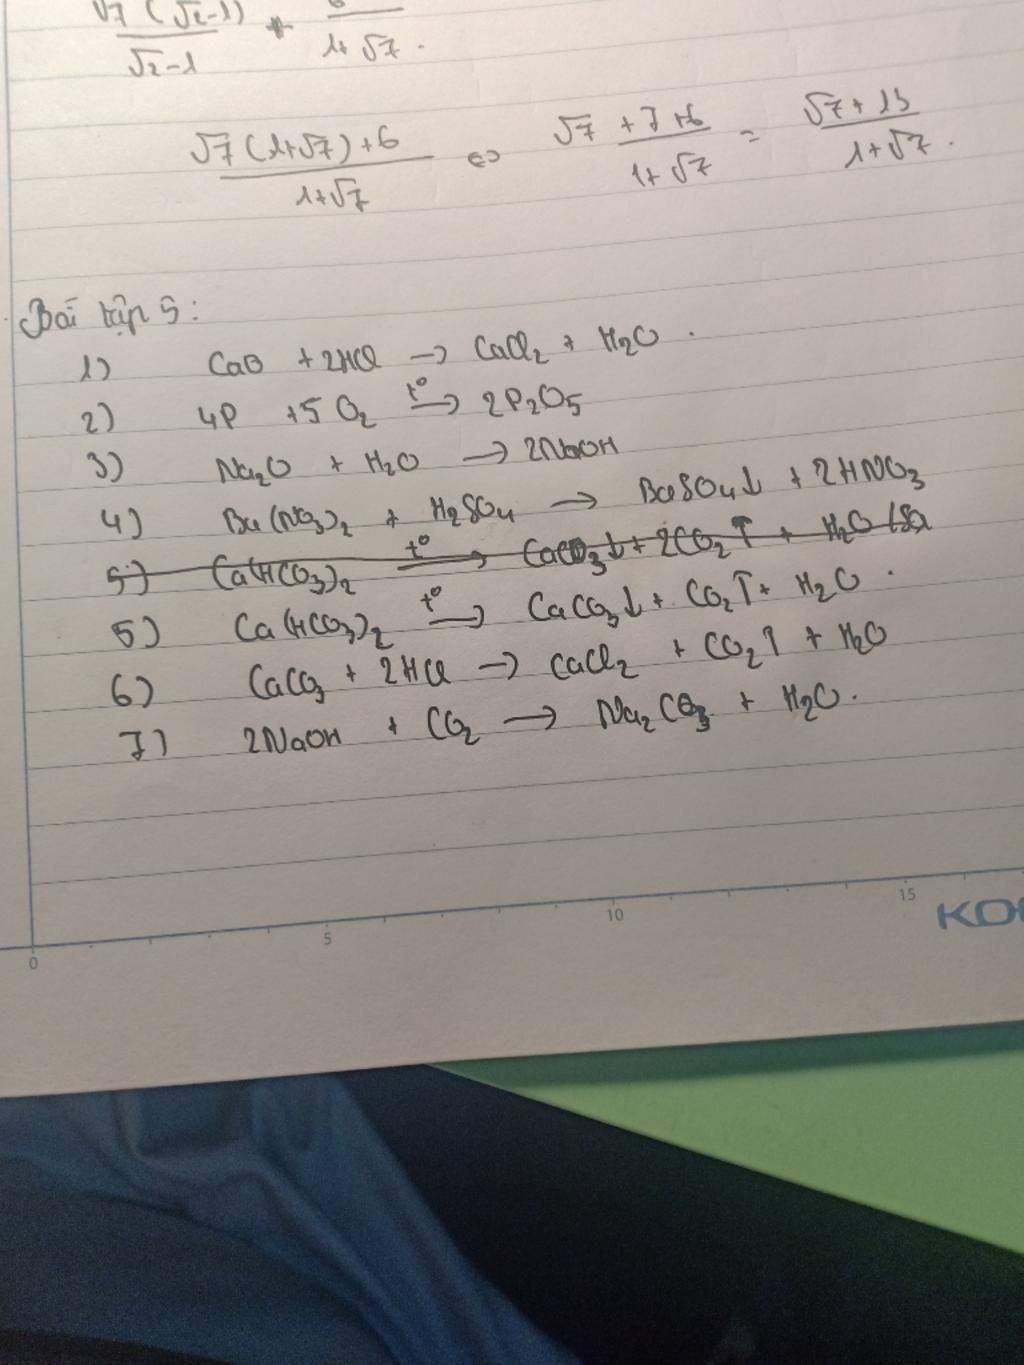 √7 (√2-1) / √2-1 + / 1+√7 .
√7 (1+√7)+6 / 1+√7 <=> √7 +7+6 / 1+√7 = √7+13 / 1+√7 .
Bài tập 5:
1) CaO + 2HCl → CaCl₂ + H₂O .
2) 4P + 5O₂ t° → 2P₂O₅
3) Na₂O + H₂O → 2NaOH
4) Ba(NO₃)₂ + H₂SO₄ → BaSO₄↓ + 2HNO₃
5) Ca(HCO₃)₂ t° → CaCO₃↓ + 2CO₂↑ + H₂O
5) Ca(HCO₃)₂ t° → CaCO₃↓ + CO₂↑ + H₂O .
6) CaCO₃ + 2HCl → CaCl₂ + CO₂↑ + H₂O
7) 2NaOH + CO₂ → Na₂CO₃ + H₂O.
0 5 10 15